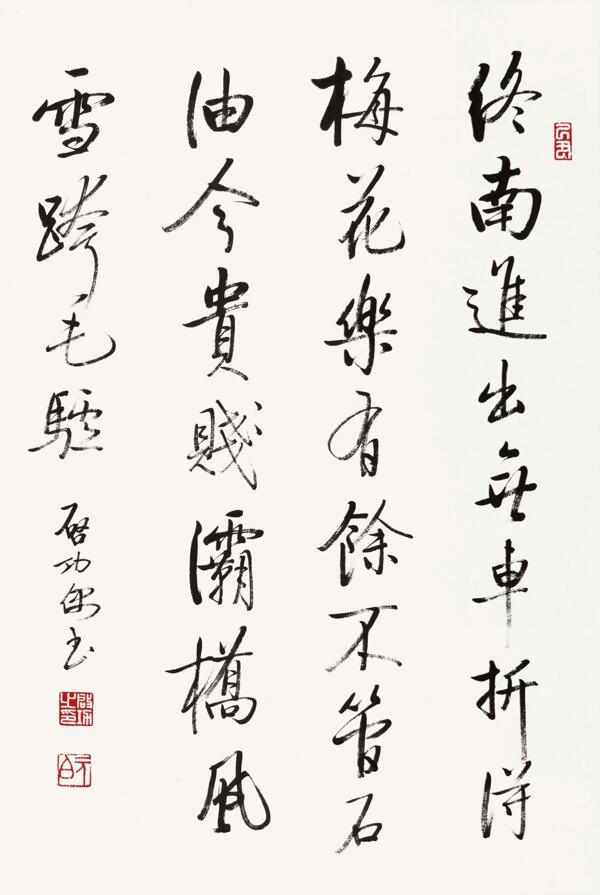 終南進出無車拼得
梅花樂有餘不管石
油今貴賤灞橋風
雪跨毛驢
啓功並書